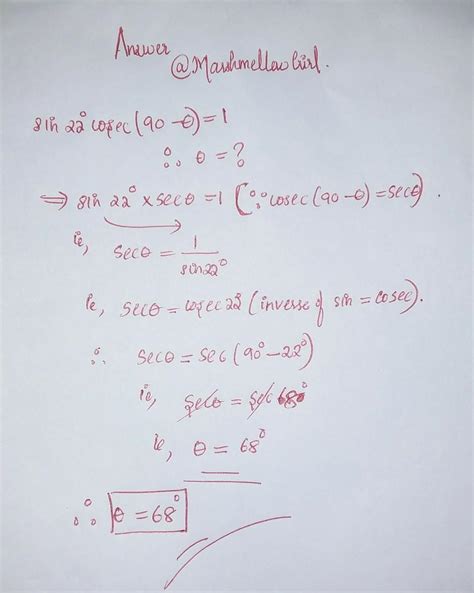 Answer
@Marshmellow Girl.
sin 22° cosec (90 - θ) = 1
∴ θ = ?
⇒ sin 22° × secθ = 1 (∵ cosec (90 - θ) = secθ).
ie, secθ = 1/sin22°
ie, secθ = cosec 22° (inverse of sin = cosec).
∴ secθ = sec (90° - 22°)
ie, secθ = sec 68°
ie, θ = 68°
∴ θ = 68°